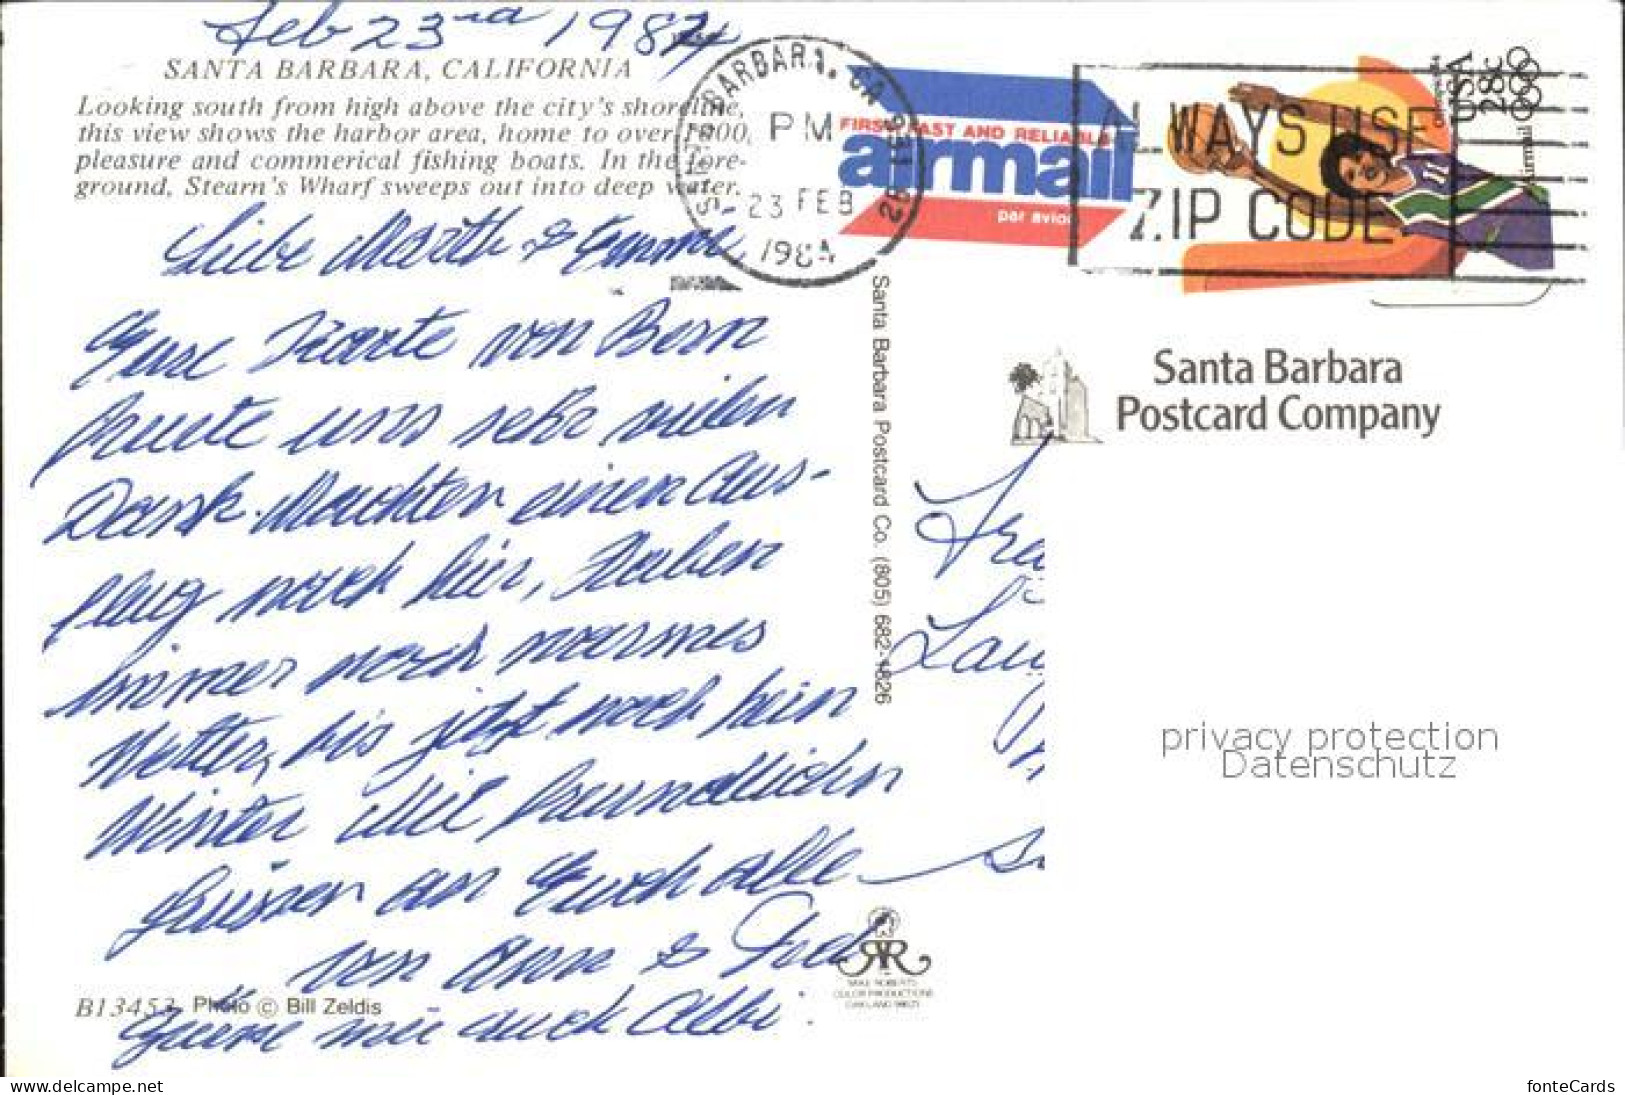 Feb 23rd 1984
SANTA BARBARA, CALIFORNIA
Looking south from high above the city's shoreline,
this view shows the harbor area, home to over 1000,
pleasure and commerical fishing boats. In the fore-
ground, Stearn's Wharf sweeps out into deep water.
BARBARA, CA
PM
23 FEB
1984
FIRST FAST AND RELIABLE
airmail
par avion
ALWAYS USE
ZIP CODE
USA
28c
Airmail
Liebe
Eure Karte von Bern
freute uns sehr vielen
Dank. Machten einen Aus-
flug nach hier, Haben
immer noch warmes
Wetter, bis jetzt noch kein
Winter Mit freundlichen
Grüssen an Euch alle
von Ann &
auch Albi
B13453 Photo © Bill Zeldis
Santa Barbara Postcard Co. (805) 682-1826
Santa Barbara
Postcard Company
MIKE ROBERTS
COLOR PRODUCTIONS
OAKLAND 94623
privacy protection
Datenschutz
www.delcampe.net
fonteCards